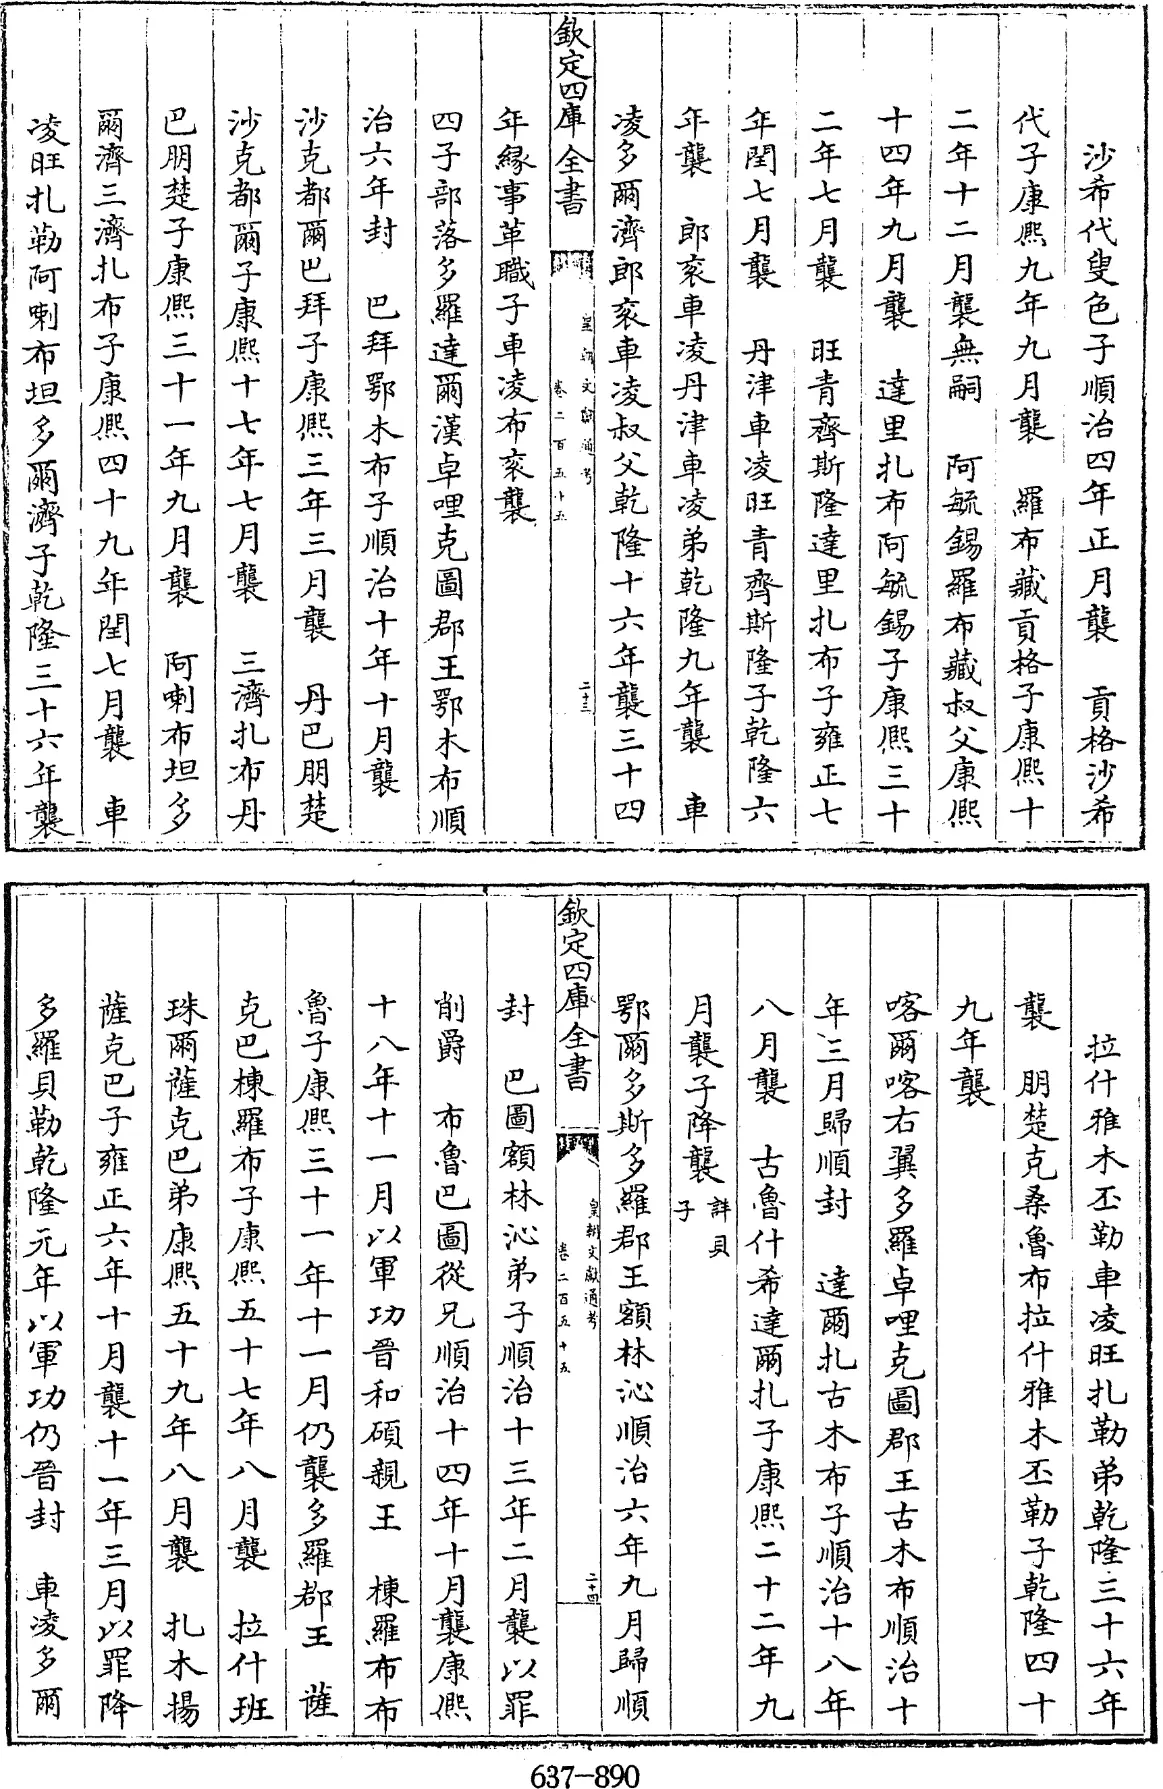 沙希代叟色子順治四年正月襲　貢格沙希
代子康熙九年九月襲　羅布藏貢格子康熙十
二年十二月襲無嗣　阿毓錫羅布藏叔父康熙
十四年九月襲　達里扎布阿毓錫子康熙三十
二年七月襲　旺青齊斯隆達里扎布子雍正七
年閏七月襲　丹津車凌旺青齊斯隆子乾隆六
年襲　郎衮車凌丹津車凌弟乾隆九年襲　車
凌多爾濟郎衮車凌叔父乾隆十六年襲三十四
欽定四庫全書
皇朝文獻通考
卷二百五十五
二十三
年緣事革職子車凌布衮襲
四子部落多羅達爾漢卓哩克圖郡王鄂木布順
治六年封　巴拜鄂木布子順治十年十月襲
沙克都爾巴拜子康熙三年三月襲　丹巴朋楚
沙克都爾子康熙十七年七月襲　三濟扎布丹
巴朋楚子康熙三十一年九月襲　阿喇布坦多
爾濟三濟扎布子康熙四十九年閏七月襲　車
凌旺扎勒阿喇布坦多爾濟子乾隆三十六年襲
拉什雅木丕勒車凌旺扎勒弟乾隆三十六年
襲　朋楚克桑魯布拉什雅木丕勒子乾隆四十
九年襲
喀爾喀右翼多羅卓哩克圖郡王古木布順治十
年三月歸順封　達爾扎古木布子順治十八年
八月襲　古魯什希達爾扎子康熙二十二年九
月襲子降襲詳貝子
鄂爾多斯多羅郡王額林沁順治六年九月歸順
欽定四庫全書
皇朝文獻通考
卷二百五十五
二十四
封　巴圖額林沁弟子順治十三年二月襲以罪
削爵　布魯巴圖從兄順治十四年十月襲康熙
十八年十一月以軍功晉和碩親王　棟羅布布
魯子康熙三十一年十一月仍襲多羅郡王　薩
克巴棟羅布子康熙五十七年八月襲　拉什班
珠爾薩克巴弟康熙五十九年八月襲　扎木揚
薩克巴子雍正六年十月襲十一年三月以罪降
多羅貝勒乾隆元年以軍功仍晉封　車凌多爾
637-890